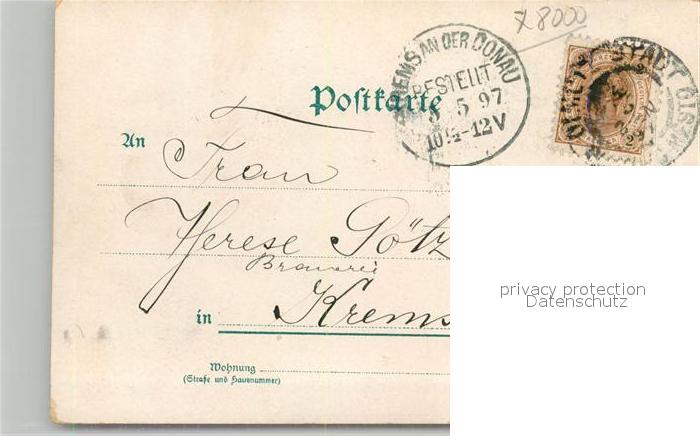 x 8000
KREMS AN DER DONAU
BESTELLT
5 97
10½-12V
Postkarte
An
Frau
Therese Götz
Brauerei
in Krems
Wohnung
(Straße und Hausnummer)
privacy protection
Datenschutz